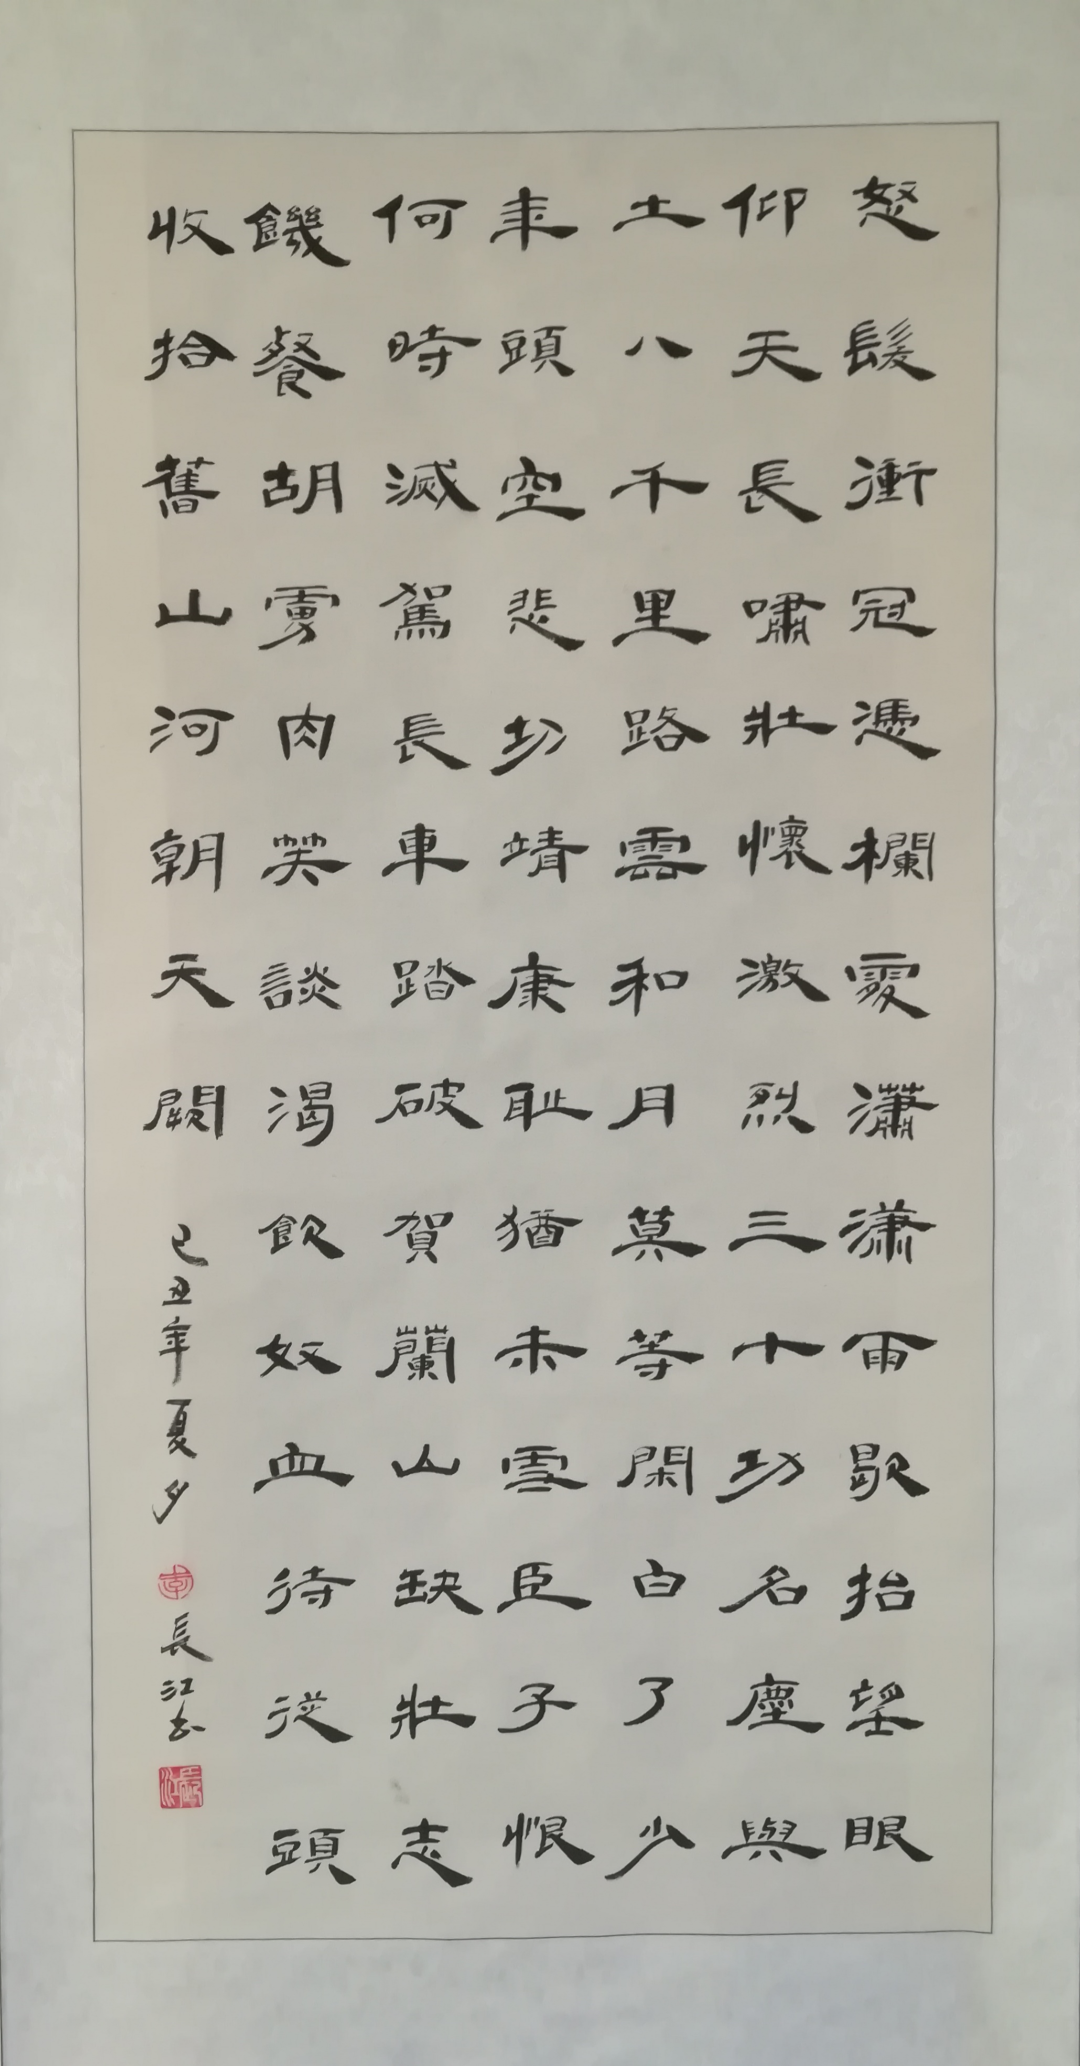 怒髮衝冠憑欄處瀟潇雨歇抬望眼
仰天長嘯壯懷激烈三十功名塵與
土八千里路雲和月莫等閑白了少
年頭空悲切靖康耻猶未雪臣子恨
何時滅駕長車踏破賀蘭山缺壯志
饑餐胡虜肉笑談渴飲奴血待從頭
收拾舊山河朝天闕
己丑年夏夕
長江書